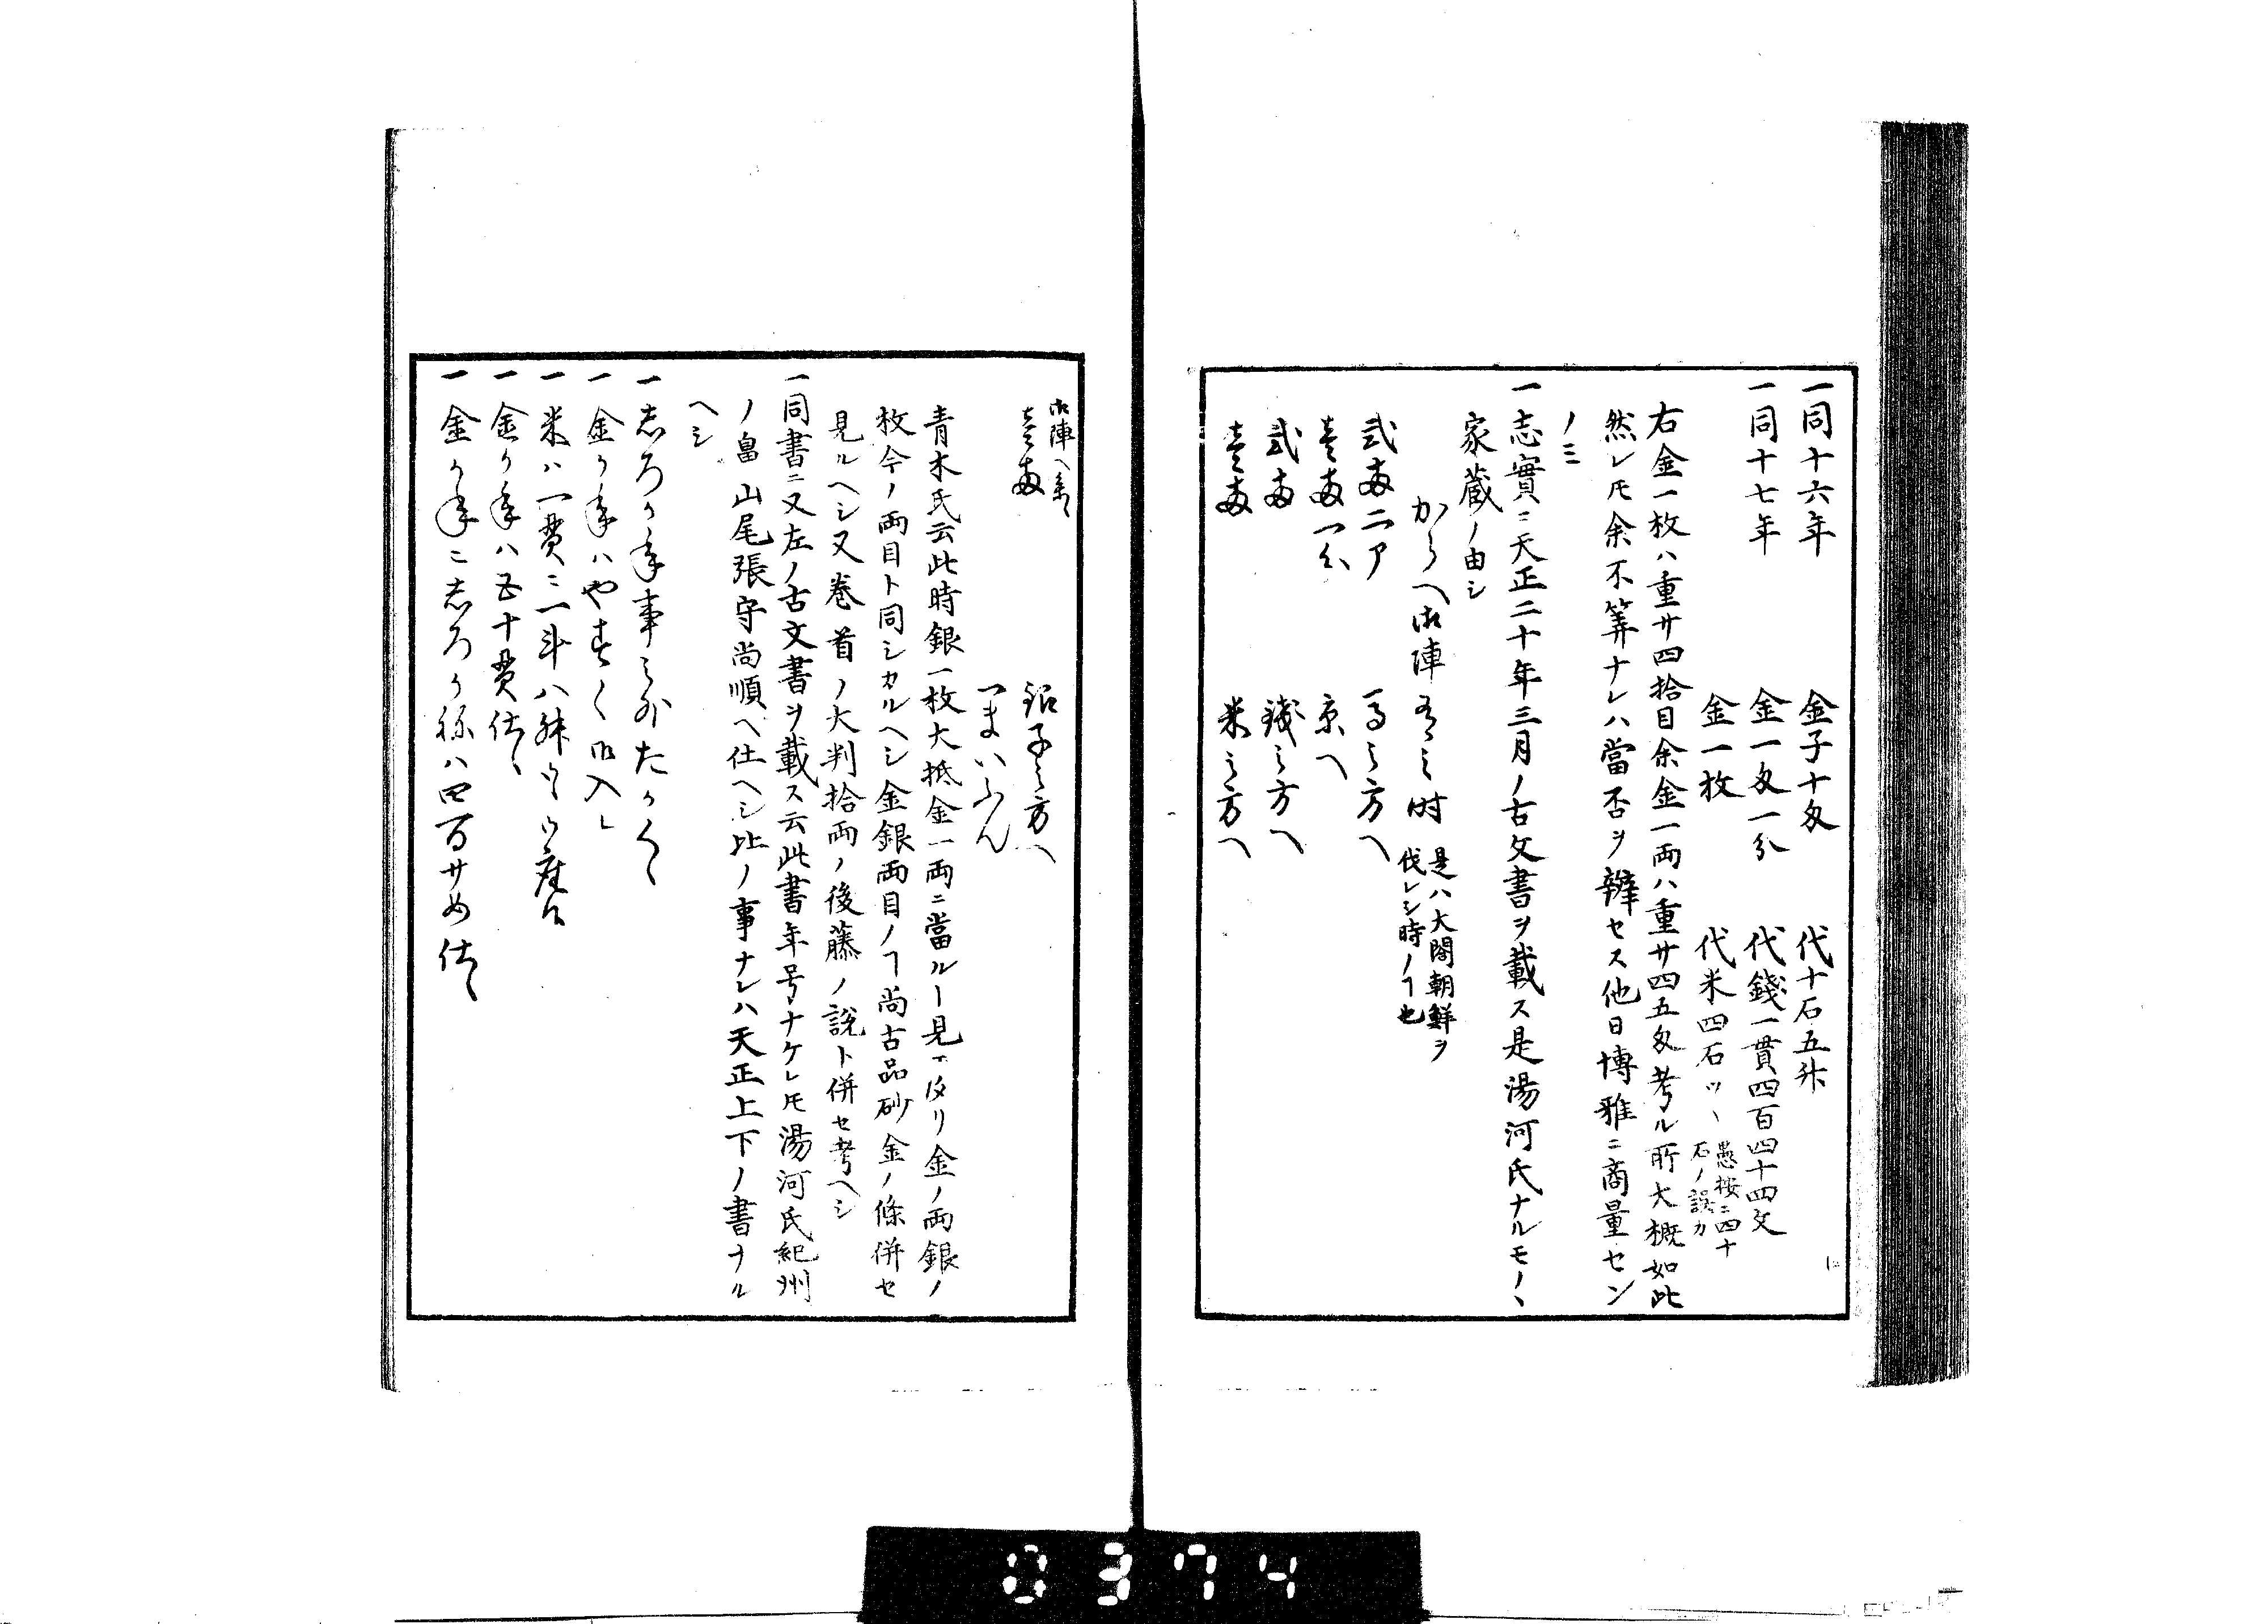 一同十六年　金子十匁　代十石五升
一同十七年　金一匁一分　代錢一貫四百四十四文
金一枚　代米四石ツヽ
愚按ニ四十
石ノ誤カ
右金一枚ハ重サ四拾目余金一両ハ重サ四五匁考ル所大概如此
然レトモ余不筭ナレハ當否ヲ辨セス他日博雅ニ商量セン
ノミ
一志實ニ天正二十年三月ノ古文書ヲ載ス是湯河氏ナルモノヽ
家蔵ノ由シ
からへ御陣
時
是ハ大閤朝鮮ヲ
伐レシ時ノヿ也
弐両二ア　馬之方へ
壹両一分　京へ
弐両　錢之方へ
壹両　米之方へ
御陣へ
壹両　銀子之方へ
青木氏云此時銀一枚大抵金一両ニ當ルト見ヘタリ金ノ両銀ノ
枚今ノ両目ト同シカルヘシ金銀両目ノヿ尚古品砂金ノ條併セ
見ルヘシ又巻首ノ大判拾両ノ後藤ノ説ト併セ考ヘシ
一同書ニ又左ノ古文書ヲ載ス云此書年号ナケレトモ湯河氏紀州
ノ畠山尾張守尚順ヘ仕ヘシ比ノ事ナレハ天正上下ノ書ナル
ヘシ
一志ろかね事之外たかく
一金かねハやすく
一米ハ一貫ニ一斗八舛
一金かねハ五十貫仕
一金かねニ志ろかねハ四百サめ仕
0374